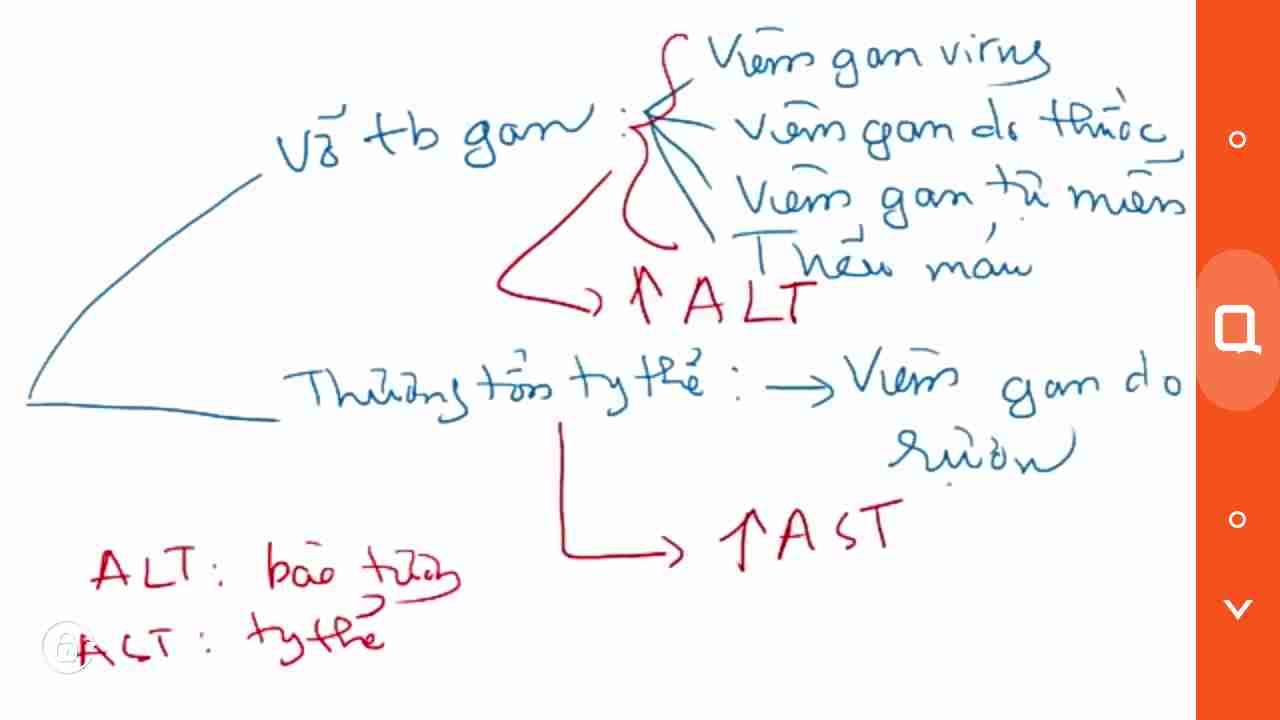 Vỡ tb gan :
Viêm gan virus
Viêm gan do thuốc
Viêm gan tự miễn
Thiếu máu
↑ ALT
Thương tổn ty thể : → Viêm gan do
rượu
↑ AST
ALT : bào tương
AST : ty thể